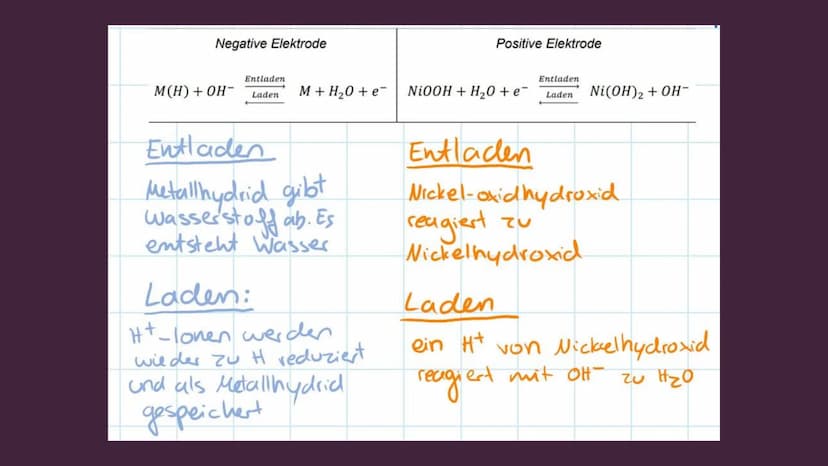 Negative Elektrode
M(H) + OH⁻ Entladen ⇄ Laden M + H₂O + e⁻
Entladen
Metallhydrid gibt
Wasserstoff ab. Es
entsteht Wasser
Laden:
H⁺-Ionen werden
wieder zu H reduziert
und als Metallhydrid
gespeichert
Positive Elektrode
NiOOH + H₂O + e⁻ Entladen ⇄ Laden Ni(OH)₂ + OH⁻
Entladen
Nickel-oxidhydroxid
reagiert zu
Nickelhydroxid
Laden
ein H⁺ von Nickelhydroxid
reagiert mit OH⁻ zu H₂O